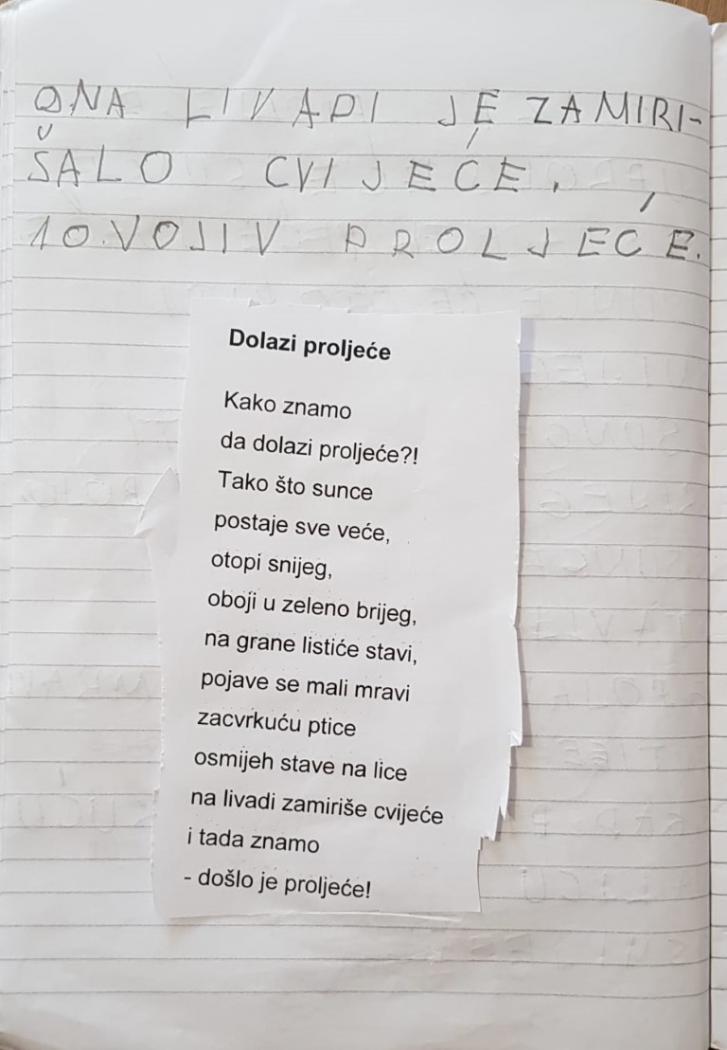 9. NA LIVADI JE ZAMIRI-
ŠALO CVIJEĆE.
10. VOLIV PROLJEĆE.
Dolazi proljeće
Kako znamo
da dolazi proljeće?!
Tako što sunce
postaje sve veće,
otopi snijeg,
oboji u zeleno brijeg,
na grane listiće stavi,
pojave se mali mravi
zacvrkuću ptice
osmijeh stave na lice
na livadi zamiriše cvijeće
i tada znamo
- došlo je proljeće!